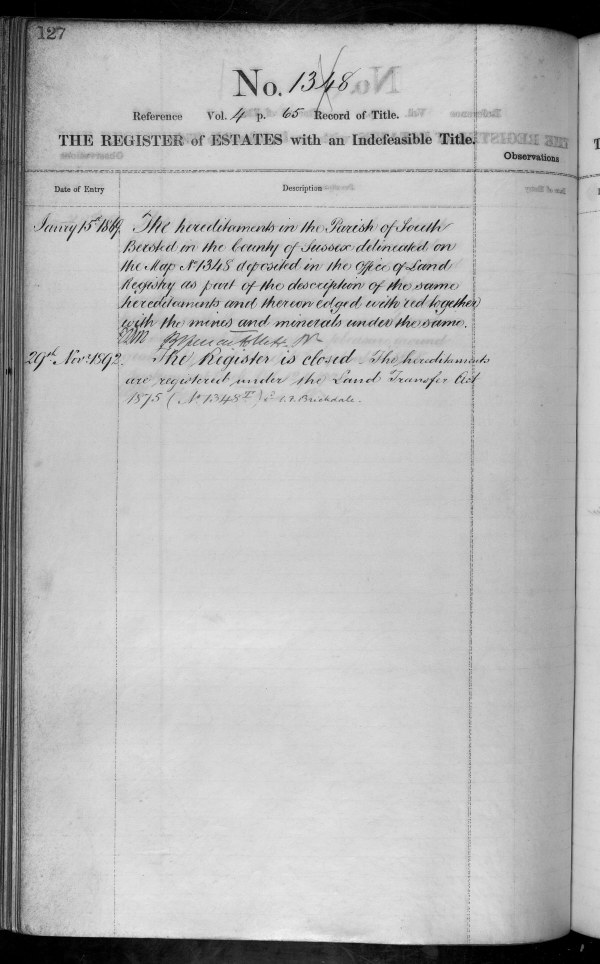 127
No. 1348
Reference Vol. 4 p. 65 Record of Title.
THE REGISTER of ESTATES with an Indefeasible Title.
Observations
Date of Entry Description
Janry 15th 1869. The hereditaments in the Parish of South
Bersted in the County of Sussex delineated on
the Map No 1348 deposited in the Office of Land
Registry as part of the description of the same
hereditaments and thereon edged with red together
with the mines and minerals under the same.
29th Novr 1892. The Register is closed. The hereditaments
are registered under the Land Transfer Act
1875 (No 1348) Brickdale.